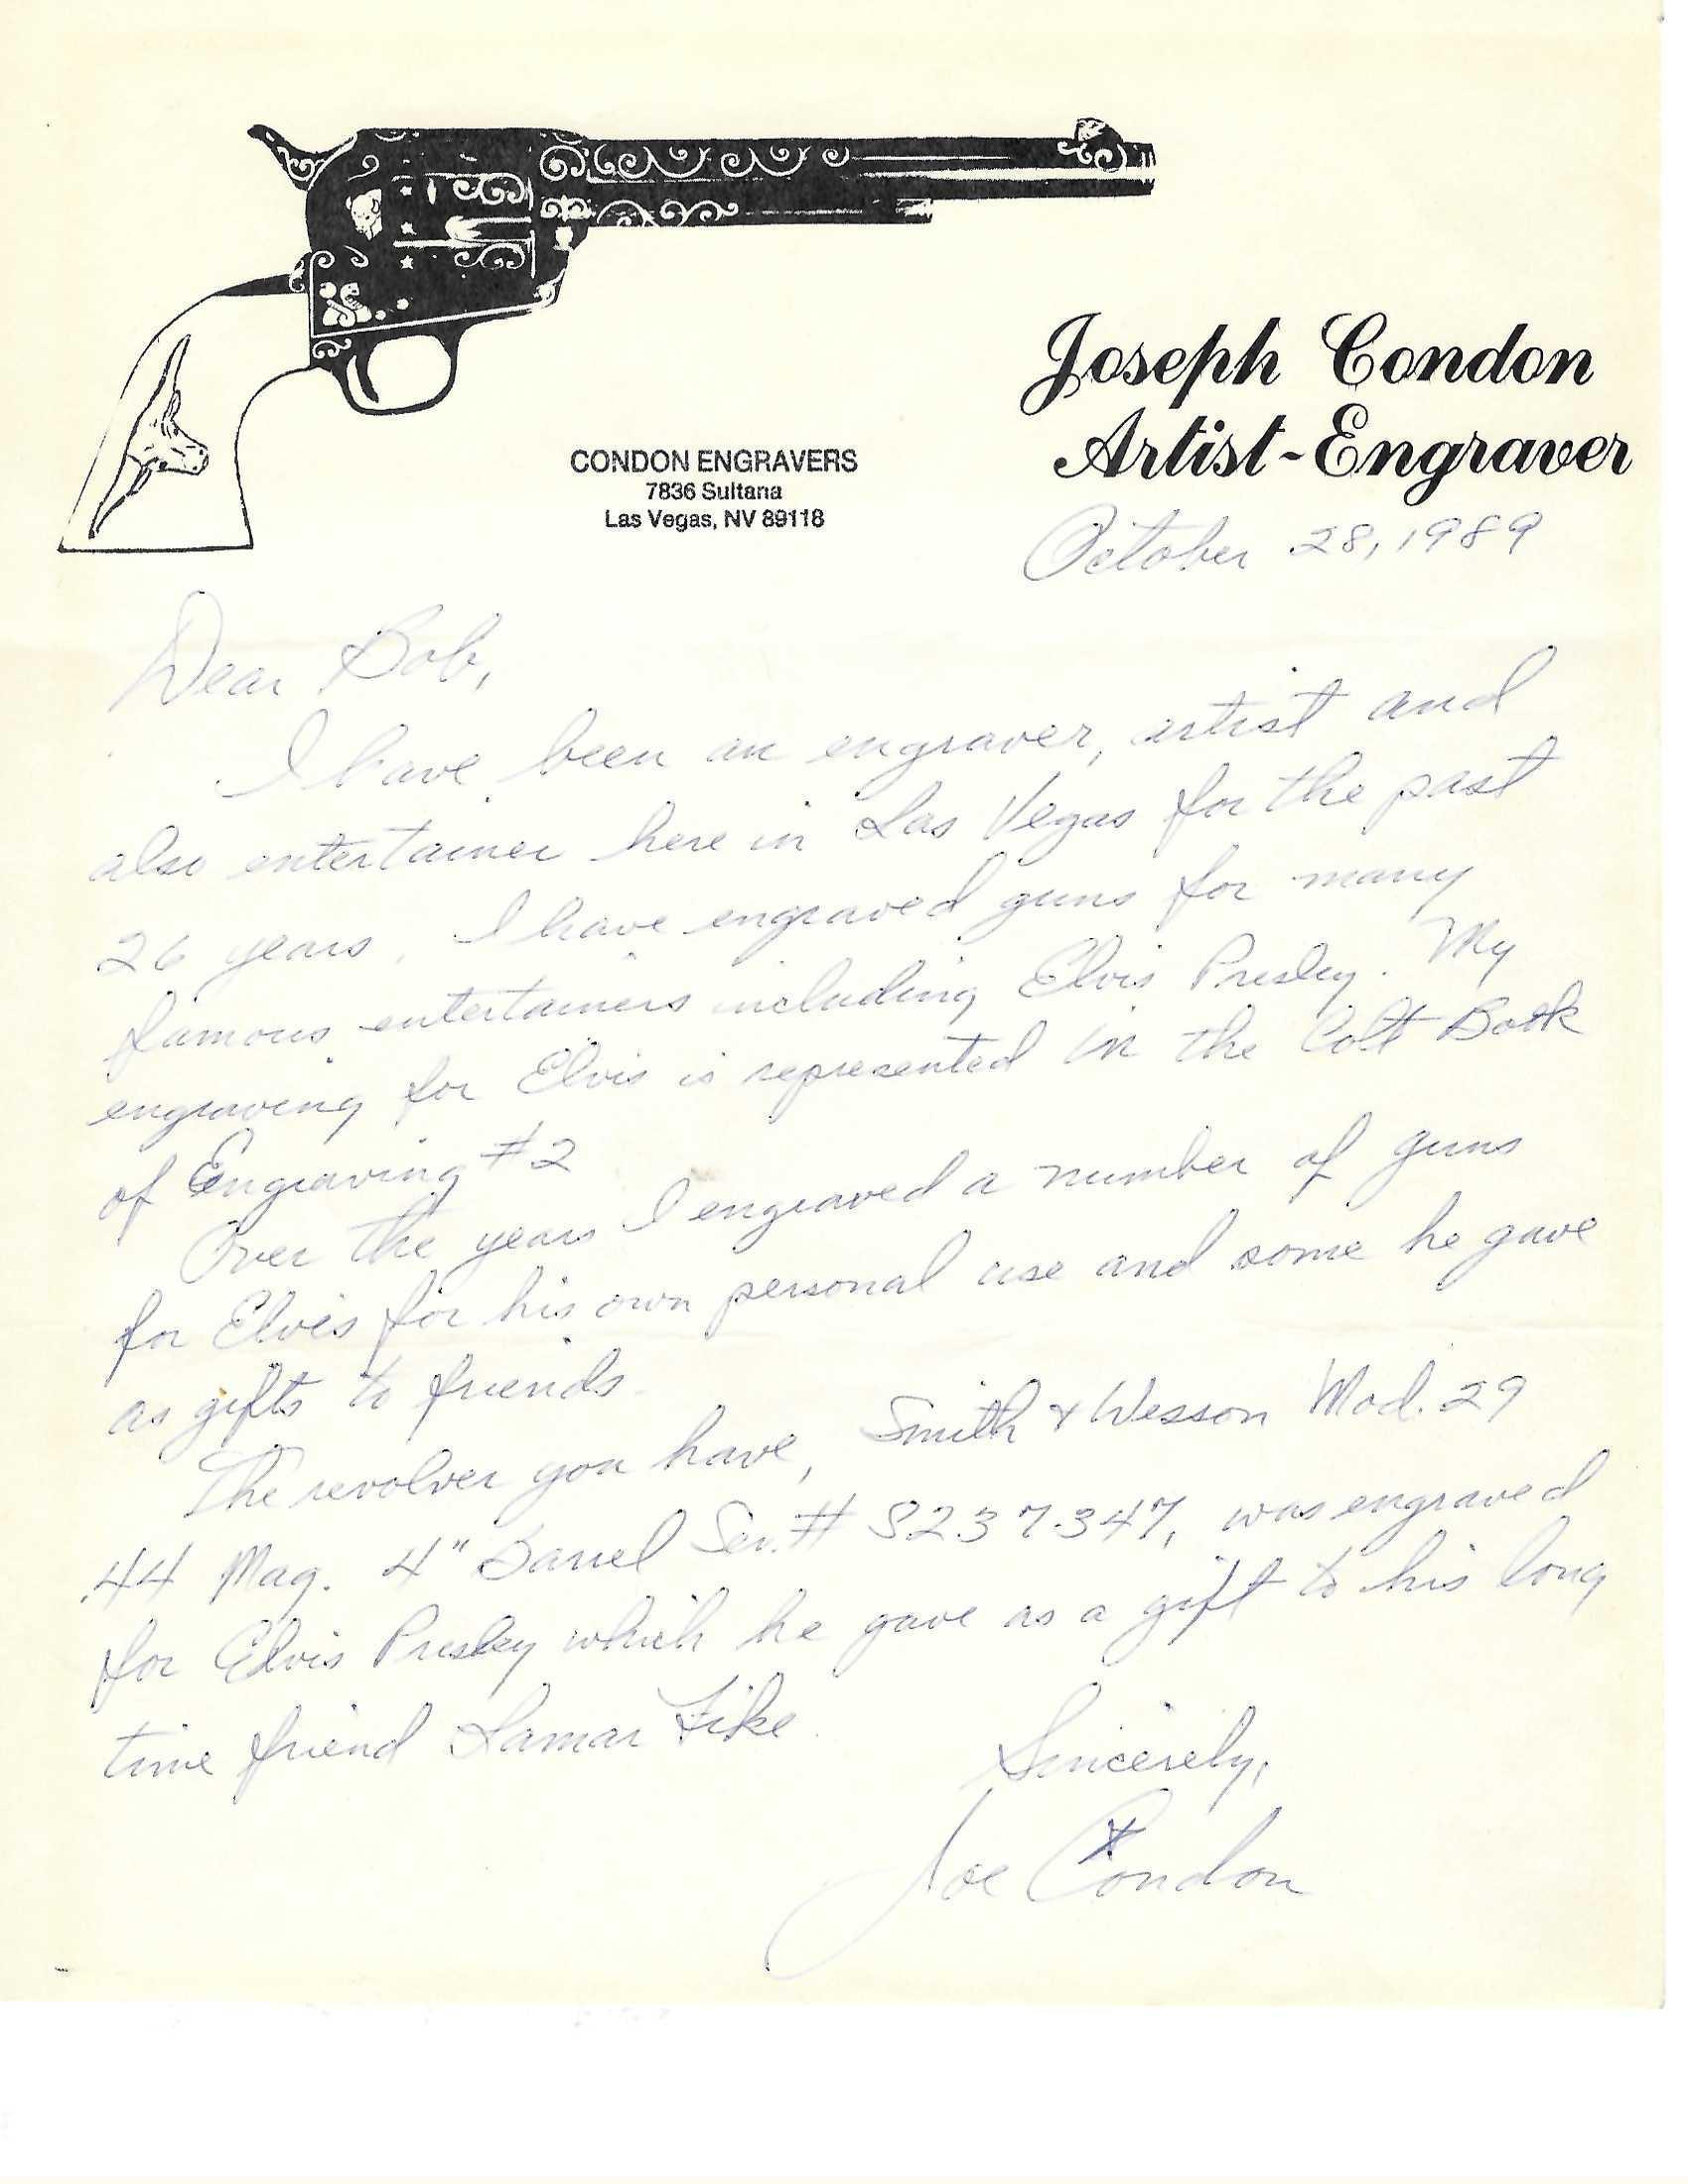 Joseph Condon
Artist-Engraver
CONDON ENGRAVERS
7836 Sultana
Las Vegas, NV 89118
October 28, 1989
Dear Bob,
I have been an engraver, artist and
also entertainer here in Las Vegas for the past
26 years. I have engraved guns for many
famous entertainers including Elvis Presley. My
engraving for Elvis is represented in the Colt Book
of Engraving #2
Over the years I engraved a number of guns
for Elvis for his own personal use and some he gave
as gifts to friends.
The revolver you have, Smith & Wesson Mod. 29
.44 Mag. 4" Barrel Ser. # S237347, was engraved
for Elvis Presley which he gave as a gift to his long
time friend Lamar Fike.
Sincerely,
Joe Condon